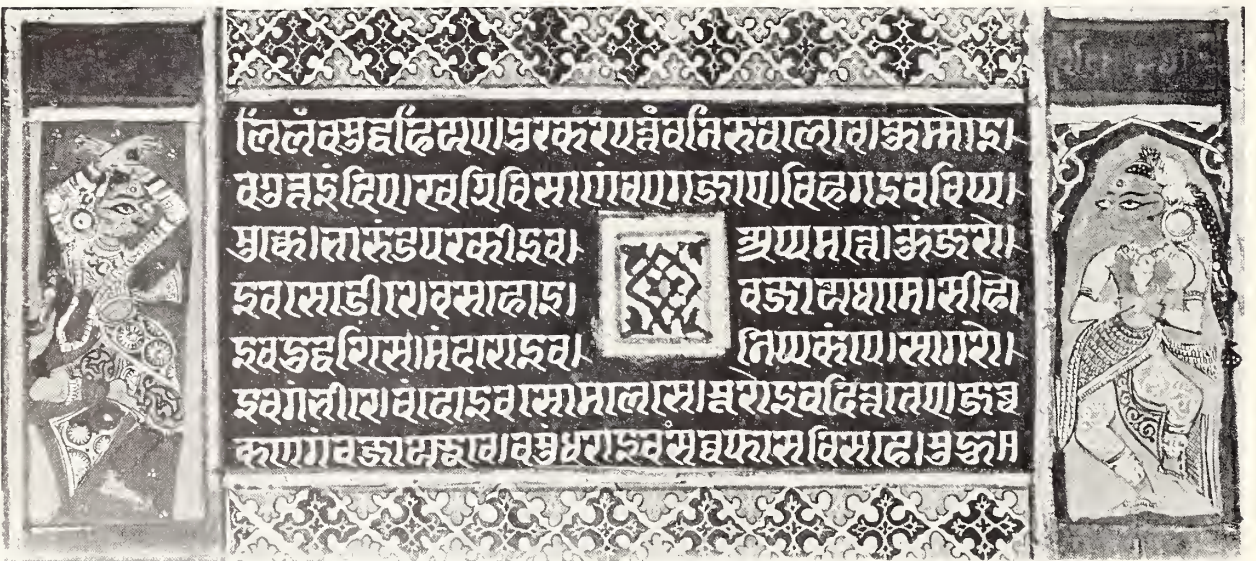 लिलं व सुद्धहियए। पुरकरपत्तं व निरुवलेवे। कुम्मो इ
व गुत्तइंदिए। खग्गिविसाणं व एगजाए। विहग इव विप्प
मुक्के। भारुंडपरकी इव। अप्पमत्ते। कुंजरो।
इव सोडीरे। वसहो इ। व जायथामे। सीहो
इव दुद्धरिसे। मंदरो इव। निप्पकंपे। सागरो।
इव गंभीरे। चंदो इव सोमलेसे। सूरो इव दित्ततेए। जच्च
कणगं व जायरूवे। वसुंधरा इव सव्वफासविसहे। सुहुय